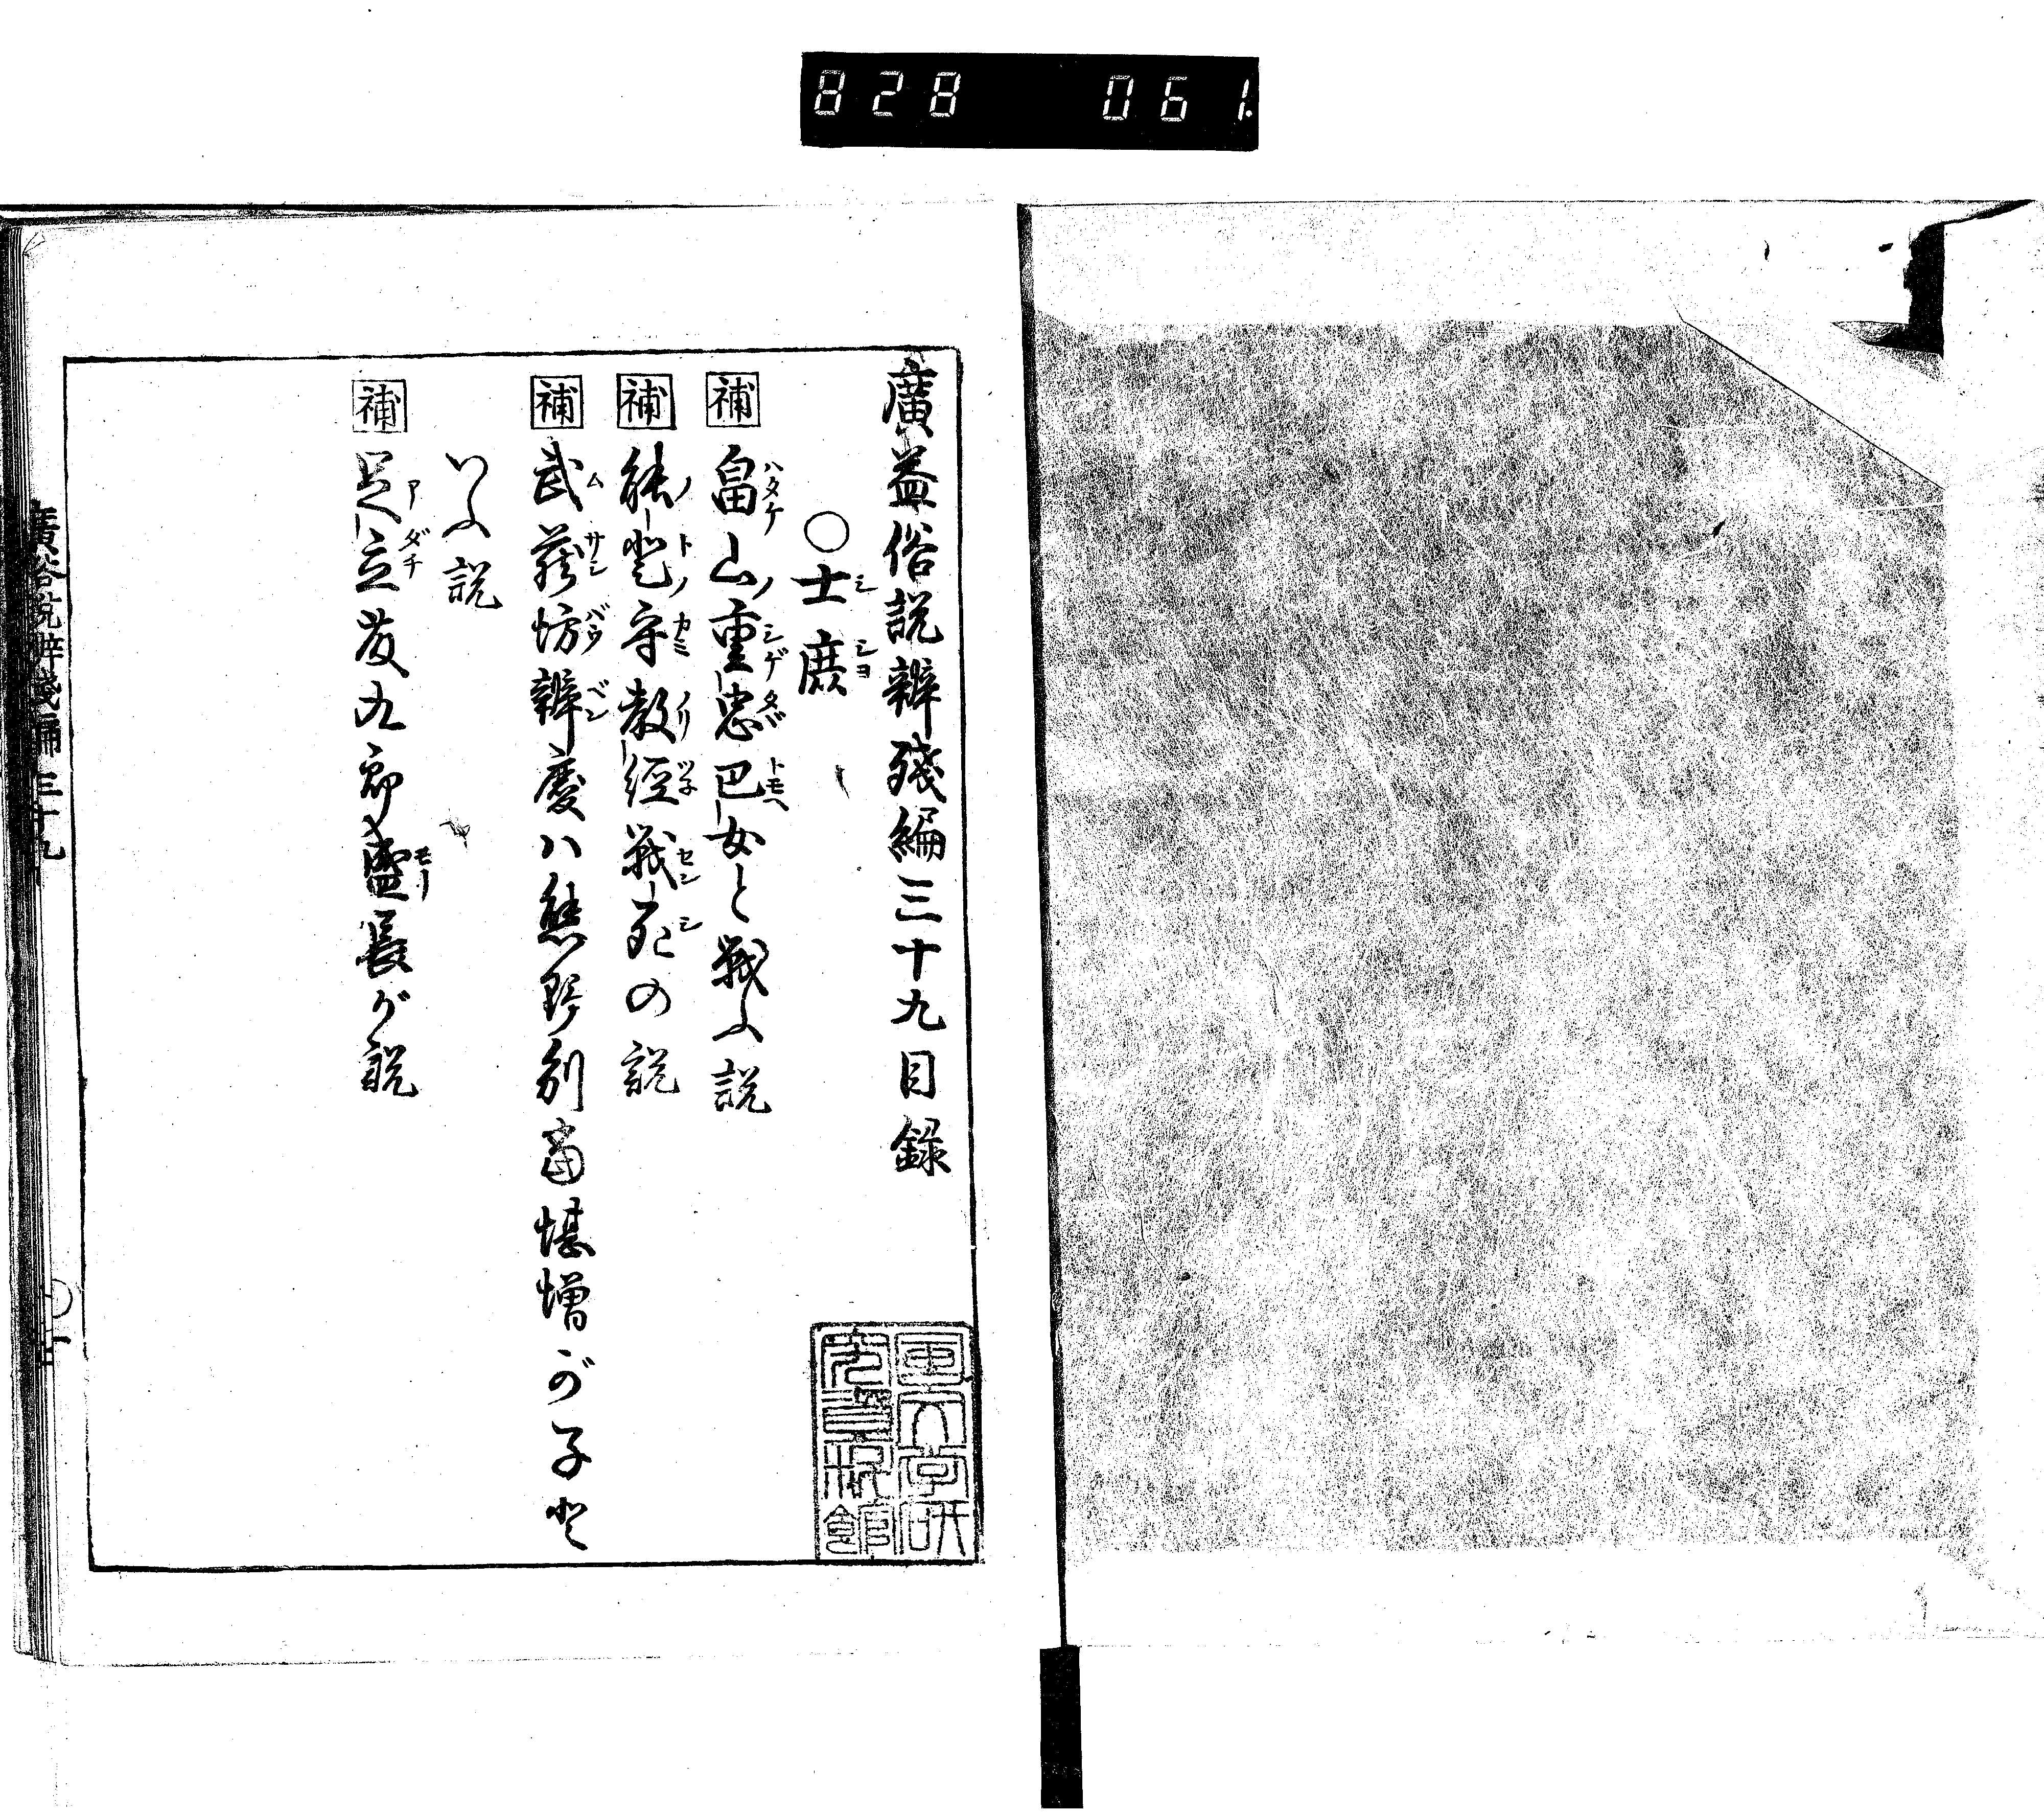 828 061
廣益俗説辨殘編三十九目録
○士庶
補 畠山重忠巴女と戦ふ説
補 能登守教經戰死の説
補 武蔵坊辨慶ハ熊野別當湛増が子と
いふ説
補 足立藤九郎盛長が説
廣俗説辨殘編三十九